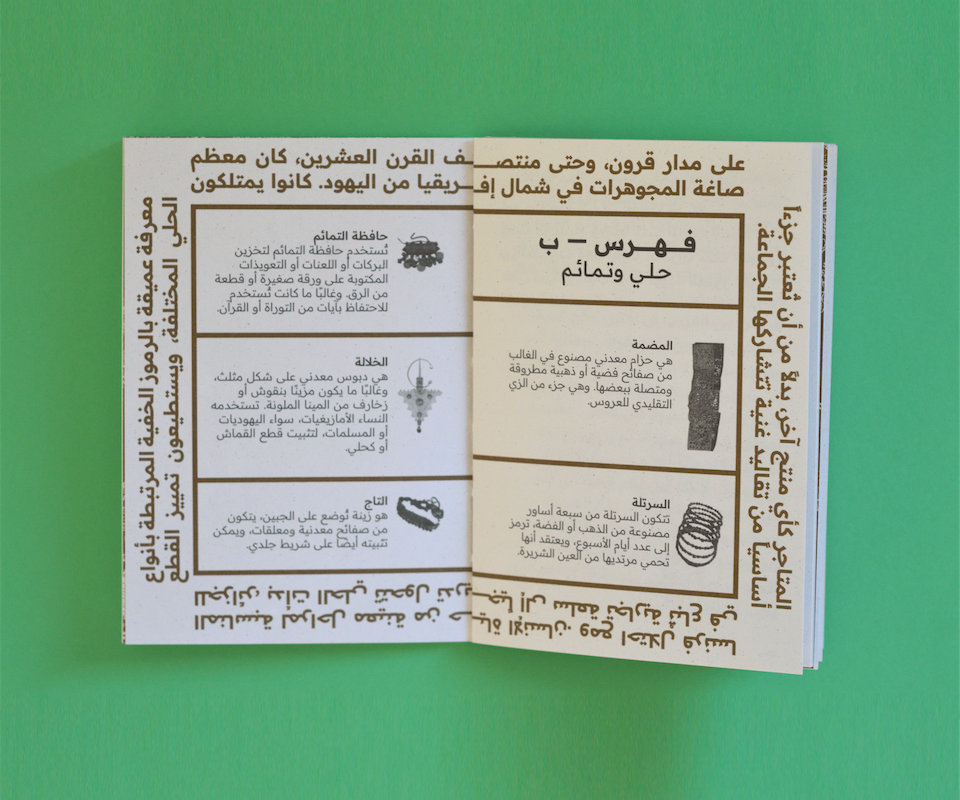 على مدار قرون، وحتى منتصـــف القرن العشرين، كان معظم
صاغة المجوهرات في شمال إفـــريقيا من اليهود. كانوا يمتلكون
معرفة عميقة بالرموز الخفية المرتبطة بأنواع
الحلي المختلفة، ويستطيعون تمييز القطع
المناسبة لمراحل معينة من حـــياة الإنسان. ومع احتلال فرنسا
للجزائر، بدأت الحلي تتحول تدريـــجياً إلى سلعة تجارية تُباع في
المتاجر كأي منتج آخر، بدلاً من أن تُعتبر جزءاً
أساسياً من تقاليد غنية تتشاركها الجماعة.
فـهـرس – ب
حلي وتمائم
المضمة
هي حزام معدني مصنوع في الغالب
من صفائح فضية أو ذهبية مطروقة
ومتصلة ببعضها. وهي جزء من الزي
التقليدي للعروس.
السرتلة
تتكون السرتلة من سبعة أساور
مصنوعة من الذهب أو الفضة، ترمز
إلى عدد أيام الأسبوع، ويعتقد أنها
تحمي مرتديها من العين الشريرة.
حافظة التمائم
تُستخدم حافظة التمائم لتخزين
البركات أو اللعنات أو التعويذات
المكتوبة على ورقة صغيرة أو قطعة
من الرق. وغالبًا ما كانت تُستخدم
للاحتفاظ بآيات من التوراة أو القرآن.
الخلالة
هي دبوس معدني على شكل مثلث،
وغالبًا ما يكون مزينًا بنقوش أو
زخارف من المينا الملونة. تستخدمه
النساء الأمازيغيات، سواء اليهوديات
أو المسلمات، لتثبيت قطع القماش
أو كحلي.
التاج
هو زينة تُوضع على الجبين، يتكون
من صفائح معدنية ومعلقات، ويمكن
تثبيته أيضًا على شريط جلدي.